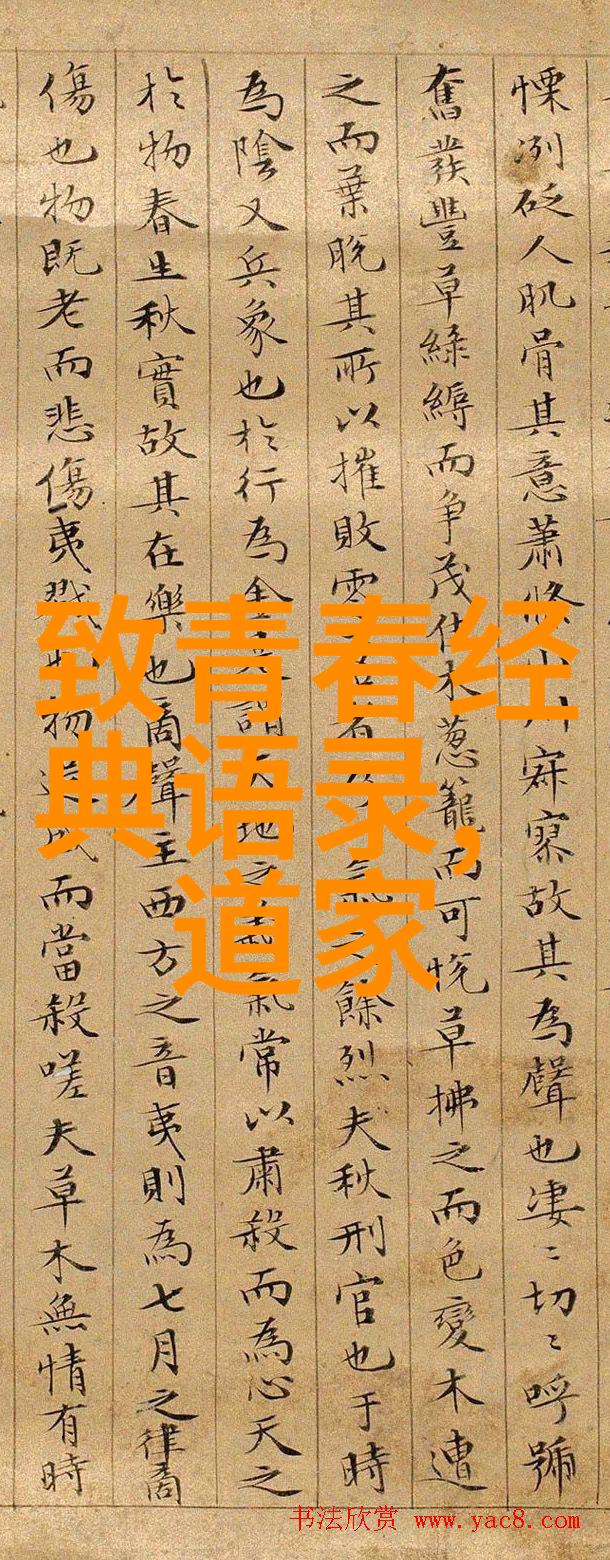 慄冽砭人肌骨其意蕭條山川寂寥故其為聲也淒〻切〻呼號
奮發豐草綠縟而爭茂佳木葱籠而可悅草拂之而色變木遭
之而葉脫其所以摧敗零落者乃氣之餘烈夫秋刑官也于時
為陰又兵象也於行為金是謂天地之義氣常以肅殺而為心天之
於物春生秋實故其在樂也商聲主西方之音夷則為七月之律商
傷也物既老而悲傷夷戮也物過盛而當殺嗟夫草木無情有時
致青春经
典语录,
道家
书法欣赏 www.yac8.com